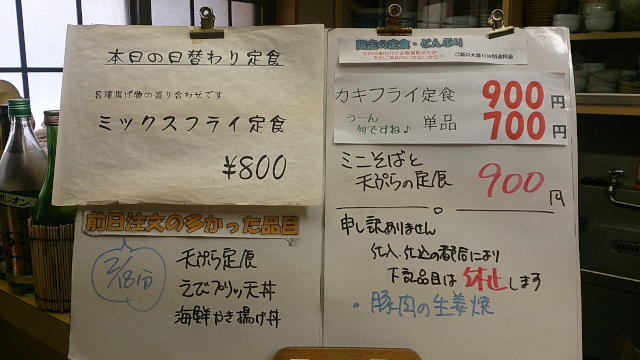 本日の日替わり定食
各種揚げ物の盛り合わせです
ミックスフライ定食
¥800
前日注文の多かった品目
2/18分
天ぷら定食
えびプリッ天丼
海鮮かき揚げ丼
限定の定食・どんぶり
ご飯の大盛りは別途料金
カキフライ定食 900円
う〜ん 何ですね♪ 単品 700円
ミニそばと
天ぷらの定食 900円
申し訳ありません
仕入・仕込の都合により
下記品目は休止します
・豚肉の生姜焼